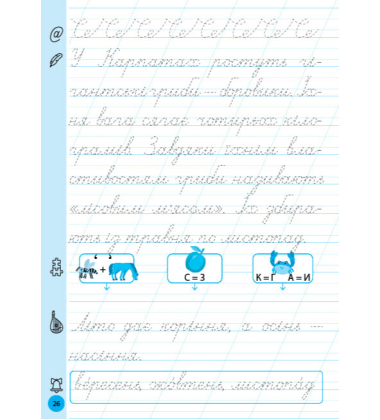 Єє Єє Єє Єє Єє Єє Єє Єє
У Карпатах ростуть гі-
гантські гриби — боровики. Їх-
ня вага сягає чотирьох кіло-
грамів. Завдяки їхнім вла-
стивостям гриби називають
«лісовим м'ясом». Їх збира-
ють із травня по листопад.
+
С = З
К = Г А = И
Літо дає коріння, а осінь —
насіння.
ве́ресень, жо́втень, листопа́д
26